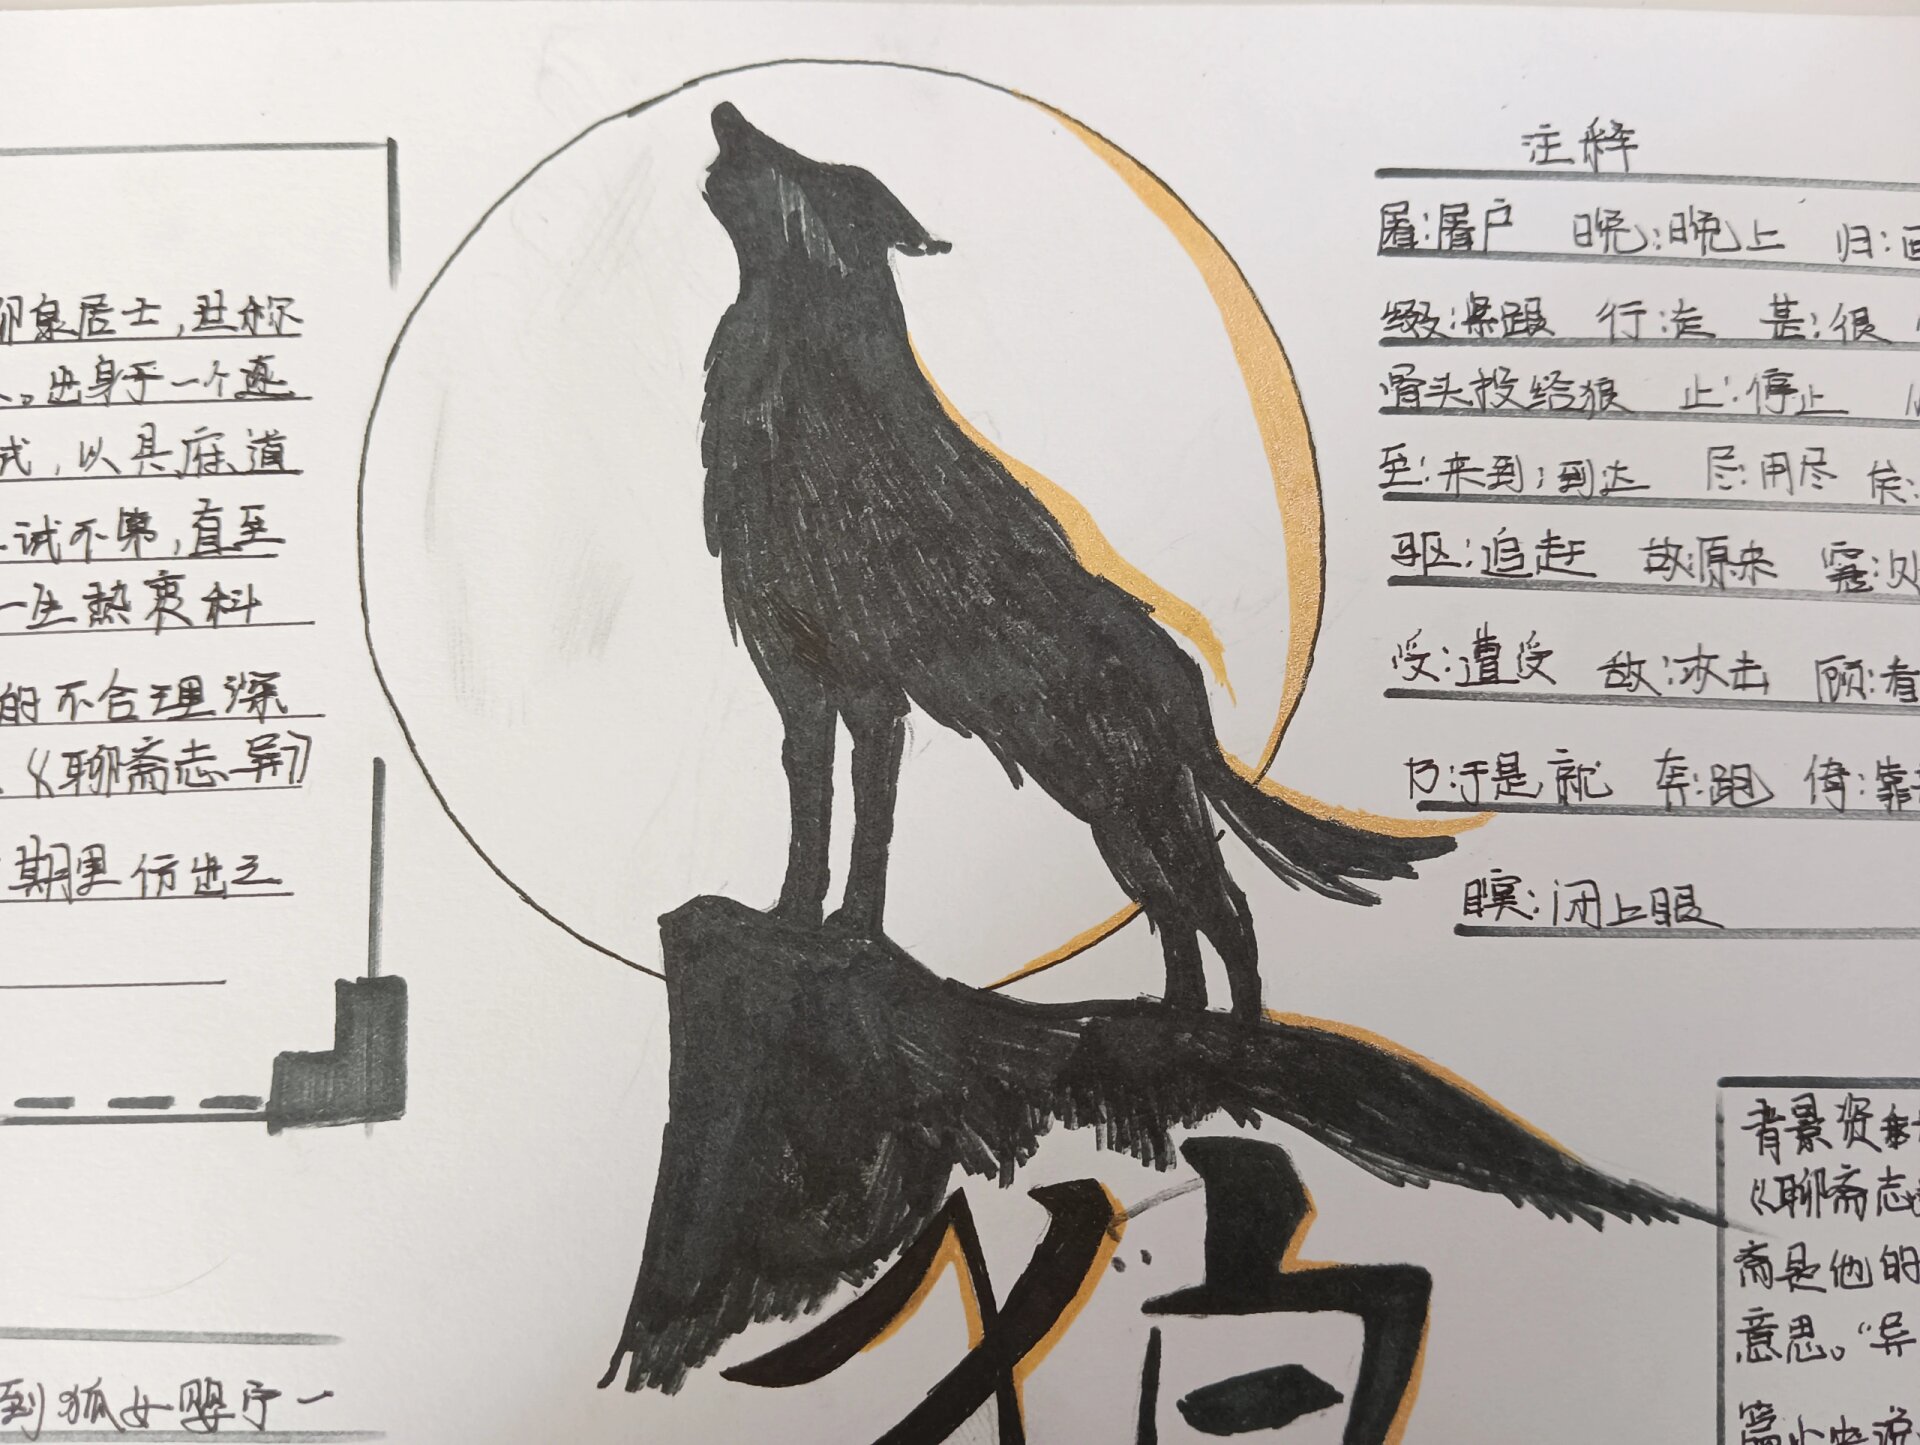 卵泉居士,世称
。出身于一个逐
试,以县府道
试不第,直至
一生热衷科
的不合理深
《聊斋志异》
期里仿出之
到狐女婴宁一
注释
屠:屠户 晚:晚上 归:
缀:紧跟 行:走 甚:很
骨头投给狼 止:停止
至:来到;到达 尽:用尽 矣:
驱:追赶 故:原来 窘:处
受:遭受 敌:攻击 顾:看
乃:于是,就 奔:跑 倚:靠
瞑:闭上眼
背景资料
《聊斋志
斋是他的
意思。“异
篇小史说
狼